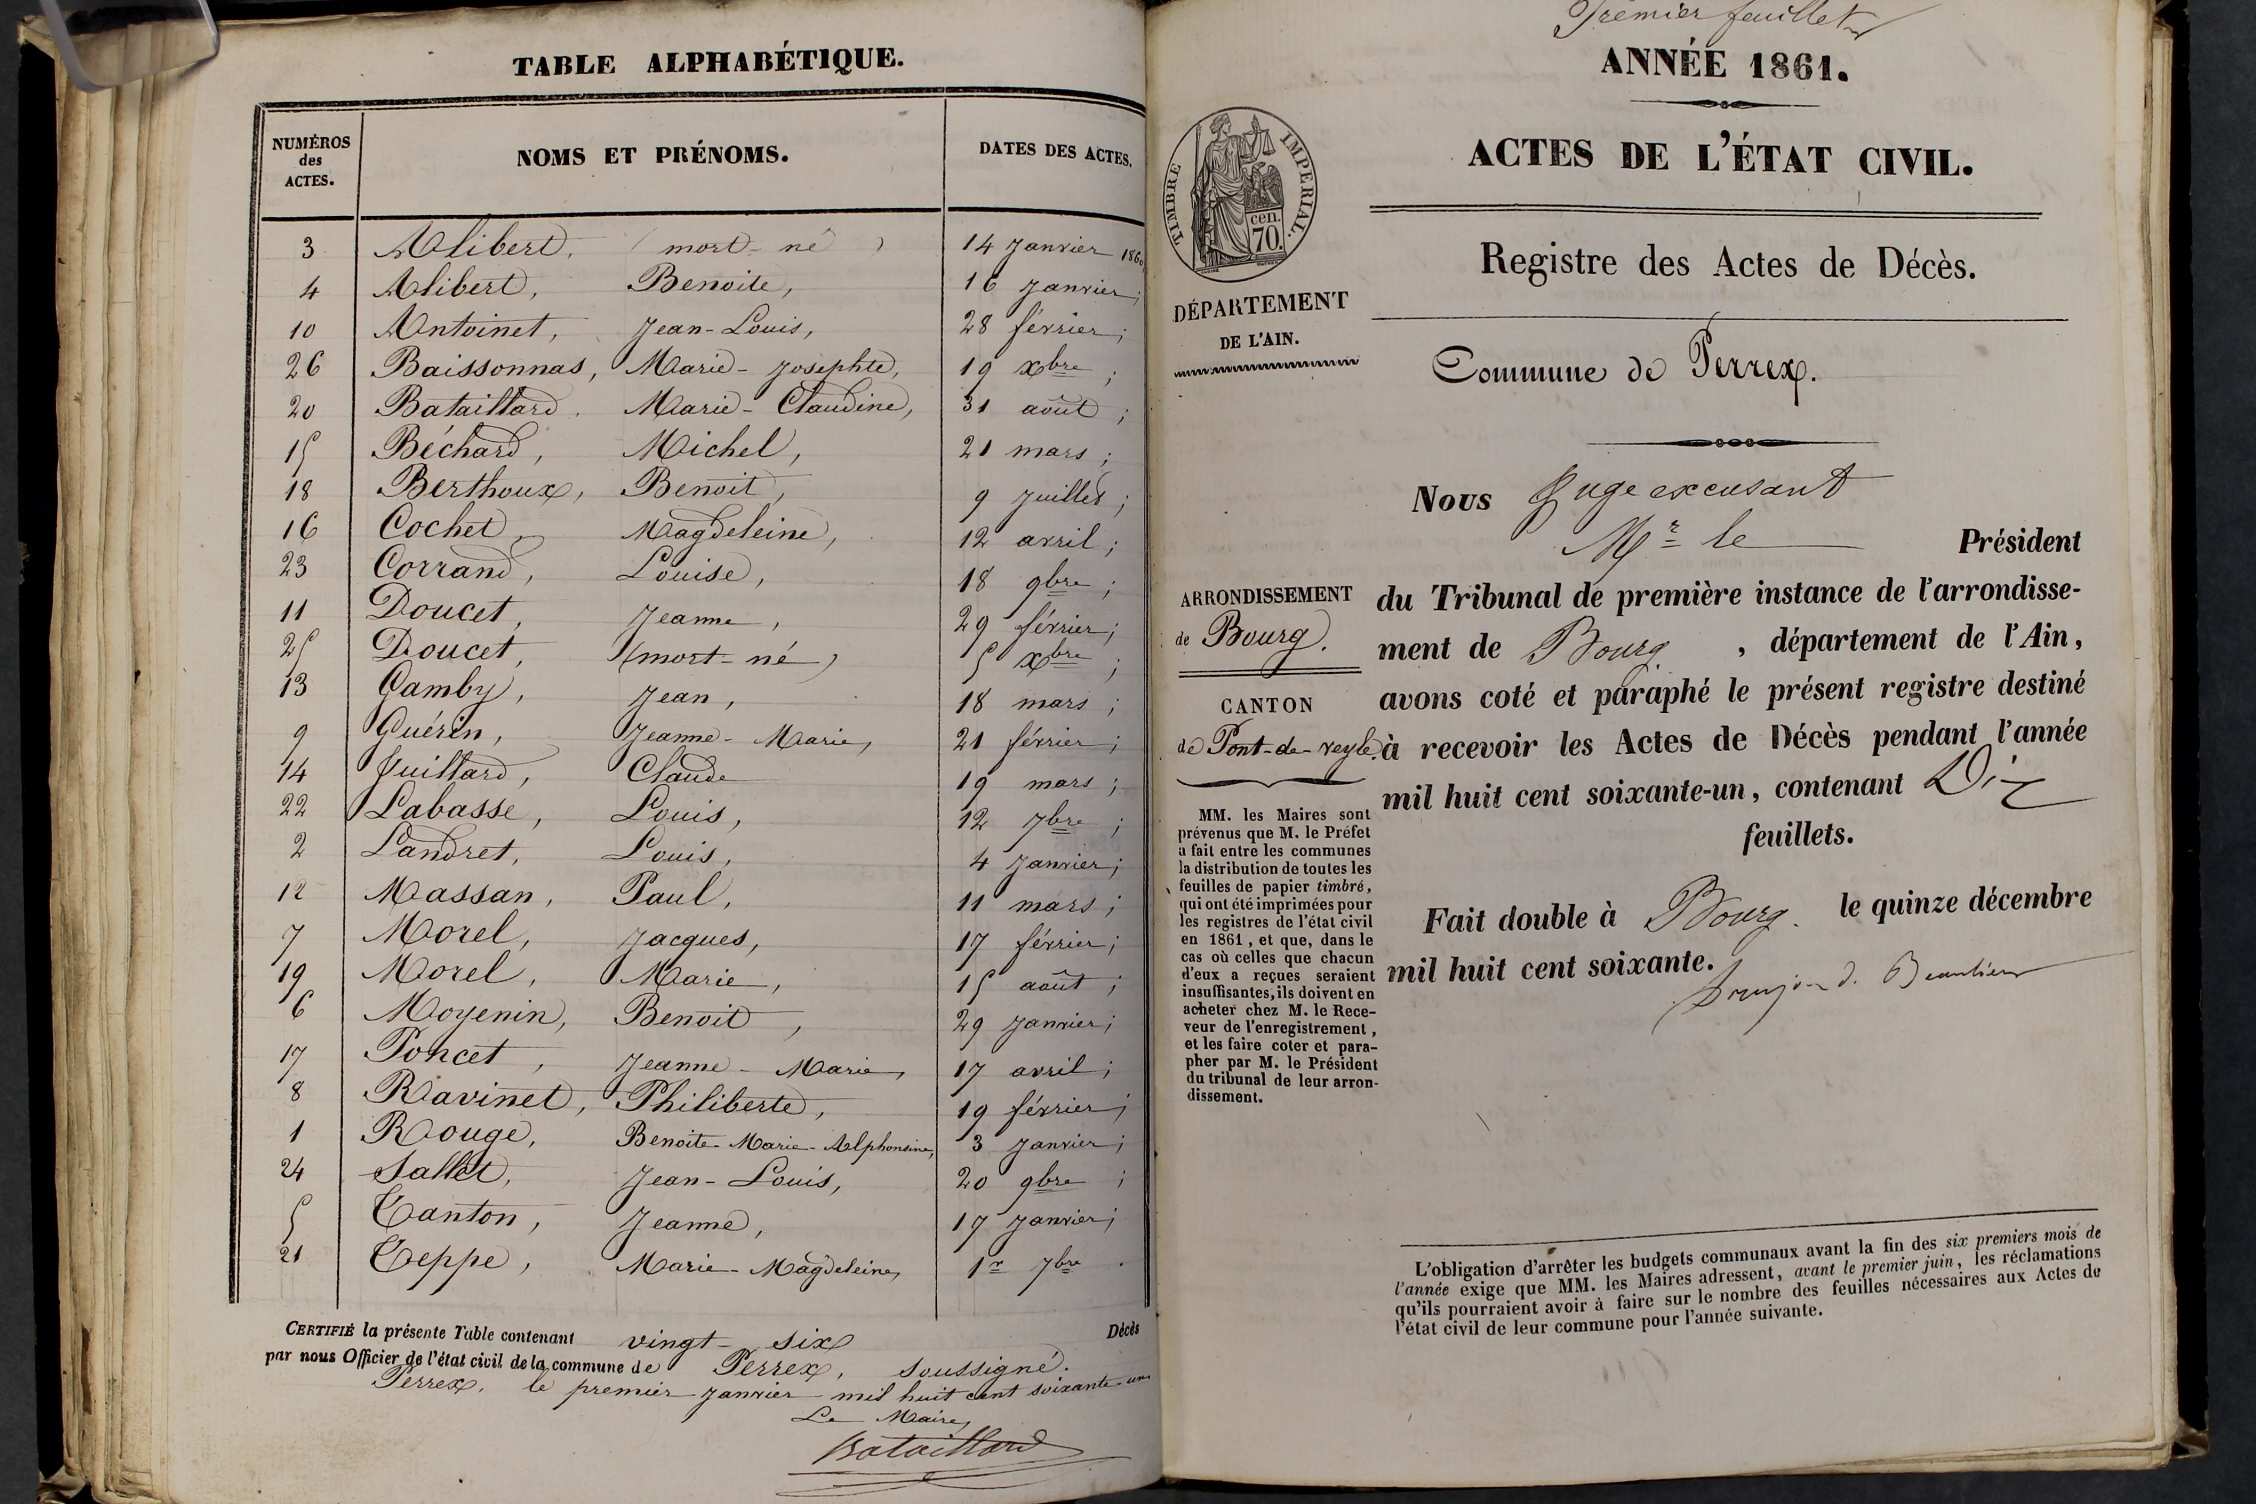 TABLE ALPHABÉTIQUE.
NUMÉROS des ACTES. NOMS ET PRÉNOMS. DATES DES ACTES.
3 Alibert, (mort-né) 14 Janvier 1860
4 Alibert, Benoite, 16 Janvier;
10 Antoinet, Jean-Louis, 28 février;
26 Baissonnas, Marie-Josephte, 19 xbre;
20 Bataillard, Marie-Claudine, 31 août;
15 Béchard, Michel, 21 mars;
18 Berthoux, Benoit, 9 Juillet;
16 Cochet, Magdeleine, 12 avril;
23 Corrand, Louise, 18 9bre;
11 Doucet, Jeanne, 29 février;
25 Doucet, (mort-né) 5 xbre;
13 Gamby, Jean, 18 mars;
9 Guérin, Jeanne-Marie, 21 février;
14 Juillard, Claude 19 mars;
22 Labasse, Louis, 12 7bre;
2 Landret, Louis, 4 Janvier;
12 Massan, Paul, 11 mars;
7 Morel, Jacques, 17 février;
19 Morel, Marie, 15 août;
6 Moyenin, Benoit, 29 Janvier;
17 Poncet, Jeanne-Marie, 17 avril;
8 Ravinet, Philiberte, 19 février;
1 Rouge, Benoite-Marie-Alphonsine, 3 Janvier;
24 Sallet, Jean-Louis, 20 9bre;
5 Tanton, Jeanne, 17 Janvier;
21 Teppe, Marie-Magdeleine, 1r 7bre.
CERTIFIÉ la présente Table contenant vingt-six Décès
par nous Officier de l'état civil de la commune de Perrex, soussigné.
Perrex, le premier Janvier mil huit cent soixante-un
Le Maire,
Bataillard
Premier feuillet
ANNÉE 1861.
ACTES DE L'ÉTAT CIVIL.
Registre des Actes de Décès.
TIMBRE IMPÉRIAL.
cen.
70.
DÉPARTEMENT
DE L'AIN.
Commune de Perrex.
Nous Juge excusant
Mr le Président
du Tribunal de première instance de l'arrondisse-
ment de Bourg, département de l'Ain,
avons coté et paraphé le présent registre destiné
à recevoir les Actes de Décès pendant l'année
mil huit cent soixante-un, contenant Dix
feuillets.
Fait double à Bourg. le quinze décembre
mil huit cent soixante.
ARRONDISSEMENT
de Bourg.
CANTON
de Pont-de-veyle.
MM. les Maires sont
prévenus que M. le Préfet
a fait entre les communes
la distribution de toutes les
feuilles de papier timbré,
qui ont été imprimées pour
les registres de l'état civil
en 1861, et que, dans le
cas où celles que chacun
d'eux a reçues seraient
insuffisantes, ils doivent en
acheter chez M. le Rece-
veur de l'enregistrement,
et les faire coter et para-
pher par M. le Président
du tribunal de leur arron-
dissement.
L'obligation d'arrêter les budgets communaux avant la fin des six premiers mois de
l'année exige que MM. les Maires adressent, avant le premier juin, les réclamations
qu'ils pourraient avoir à faire sur le nombre des feuilles nécessaires aux Actes de
l'état civil de leur commune pour l'année suivante.